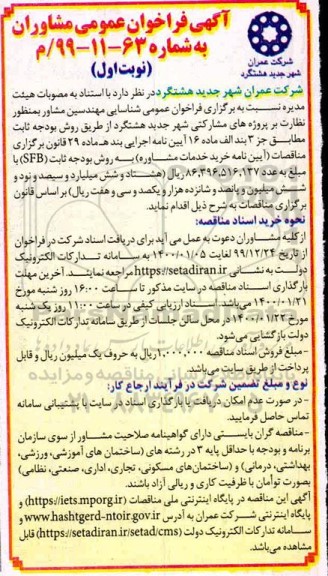 آگهی فراخوان عمومی مشاوران
به شماره ۶۳-۱۱-۹۹/م
(نوبت اول)
شرکت عمران
شهر جدید هشتگرد
شرکت عمران شهر جدید هشتگرد در نظر دارد با استناد به مصوبات هیئت
مدیره نسبت به برگزاری فراخوان عمومی شناسایی مهندسین مشاور بمنظور
نظارت بر پروژه های مشارکتی شهر جدید هشتگرد از طریق روش بودجه ثابت
مطابق جز ۳ بند الف ماده ۱۶ آیین نامه اجرایی بند ه ماده ۲۹ قانون برگزاری
مناقصات (آیین نامه خرید خدمات مشاوره) به روش بودجه ثابت (SFB) با
مبلغ به عدد ۸۶,۳۹۶,۵۱۶,۱۳۷ ریال (هشتاد و شش میلیارد و سیصد و نود و
شش میلیون و پانصد و شانزده هزار و یکصد و سی و هفت ریال) بر اساس قانون
برگزاری مناقصات به شرح ذیل اقدام نماید.
نحوه خرید اسناد مناقصه:
از کلیه مشاوران دعوت به عمل می آید برای دریافت اسناد شرکت در فراخوان
از تاریخ ۹۹/۱۲/۲۴ لغایت ۱۴۰۰/۰۱/۰۵ به سامانه تدارکات الکترونیک
دولت به نشانی https://setadiran.ir مراجعه نمایند. آخرین مهلت
بارگذاری اسناد مناقصه در سایت مذکور تا ساعت ۱۶:۰۰ روز شنبه مورخ
۱۴۰۰/۰۱/۲۱ می‌باشد. اسناد ارزیابی کیفی در ساعت ۱۱:۰۰ روز یک شنبه
مورخ ۱۴۰۰/۰۱/۲۲ در محل سالن جلسات از طریق سامانه تدارکات الکترونیک
دولت بازگشایی می‌شود.
-مبلغ فروش اسناد مناقصه ۱,۰۰۰,۰۰۰ ریال به حروف یک میلیون ریال و قابل
پرداخت از طریق سایت می باشد
نوع و مبلغ تضمین شرکت در فرآیند ارجاع کار:
- در صورت عدم امکان دریافت یا بارگذاری اسناد در سایت با پشتیبانی سامانه
تماس حاصل فرمایید.
-مناقصه گران بایستی دارای گواهینامه صلاحیت مشاور از سوی سازمان
برنامه و بودجه با حداقل پایه ۳ در رشته های (ساختمان های آموزشی، ورزشی،
بهداشتی، درمانی) و (ساختمان‌های مسکونی، تجاری، اداری، صنعتی، نظامی)
بصورت توأمان با ظرفیت کاری و ریالی آزاد باشند.
آگهی این مناقصه در پایگاه اینترنتی ملی مناقصات (https://iets.mporg.ir) و
پایگاه اینترنتی شرکت عمران به آدرس www.hashtgerd-ntoir.gov.ir و
سامانه تدارکات الکترونیک دولت (https://setadiran.ir/setad/cms) قابل
مشاهده می‌باشد.